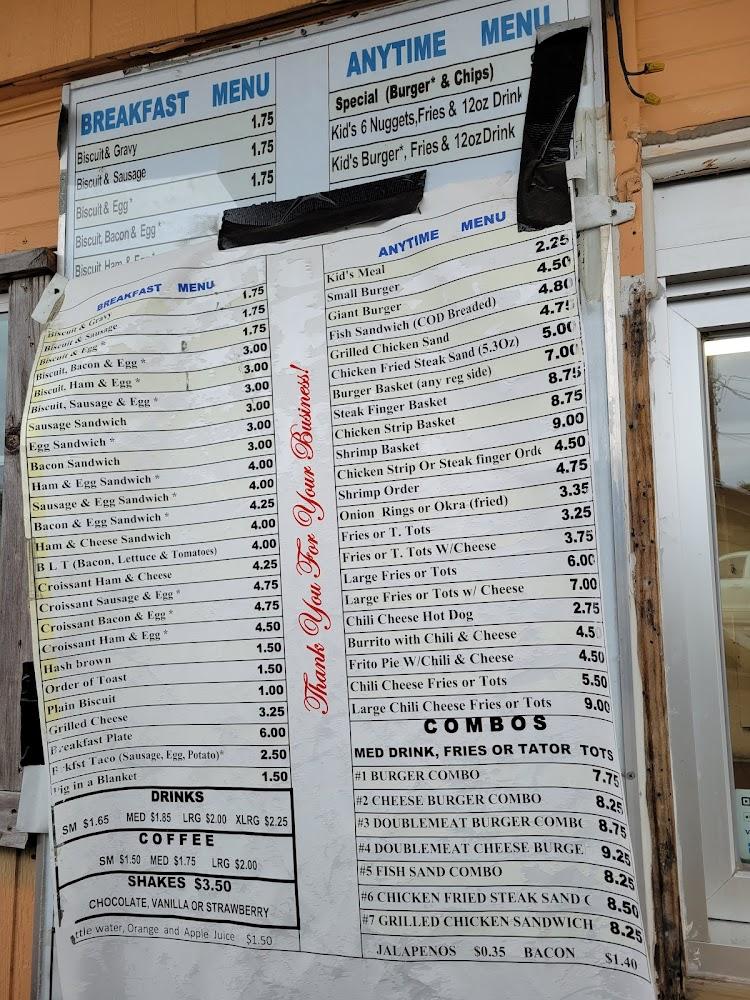 BREAKFAST MENU
Biscuit & Gravy 1.75
Biscuit & Sausage 1.75
Biscuit & Egg* 1.75
Biscuit, Bacon & Egg*
Biscuit Ham &
ANYTIME MENU
Special (Burger* & Chips)
Kid's 6 Nuggets,Fries & 12oz Drink
Kid's Burger*, Fries & 12ozDrink
BREAKFAST MENU
Biscuit & Gravy 1.75
Biscuit & Sausage 1.75
Biscuit & Egg * 1.75
Biscuit, Bacon & Egg * 3.00
Biscuit, Ham & Egg * 3.00
Biscuit, Sausage & Egg * 3.00
Sausage Sandwich 3.00
Egg Sandwich * 3.00
Bacon Sandwich 3.00
Ham & Egg Sandwich * 4.00
Sausage & Egg Sandwich * 4.00
Bacon & Egg Sandwich * 4.25
Ham & Cheese Sandwich 4.00
B L T (Bacon, Lettuce & Tomatoes) 4.00
Croissant Ham & Cheese 4.25
Croissant Sausage & Egg * 4.75
Croissant Bacon & Egg * 4.75
Croissant Ham & Egg * 4.50
Hash brown 1.50
Order of Toast 1.50
Plain Biscuit 1.00
Grilled Cheese 3.25
Breakfast Plate 6.00
Brkfst Taco (Sausage, Egg, Potato)* 2.50
Pig in a Blanket 1.50
DRINKS
SM $1.65 MED $1.85 LRG $2.00 XLRG $2.25
COFFEE
SM $1.50 MED $1.75 LRG $2.00
SHAKES $3.50
CHOCOLATE, VANILLA OR STRAWBERRY
ttle water, Orange and Apple Juice $1.50
Thank You For Your Business!
ANYTIME MENU
Kid's Meal
Small Burger 2.25
Giant Burger 4.50
Fish Sandwich (COD Breaded) 4.80
Grilled Chicken Sand 4.75
Chicken Fried Steak Sand (5.3Oz) 5.00
Burger Basket (any reg side) 7.00
Steak Finger Basket 8.75
Chicken Strip Basket 8.75
Shrimp Basket 9.00
Chicken Strip Or Steak finger Orde 4.50
Shrimp Order 4.75
Onion Rings or Okra (fried) 3.35
Fries or T. Tots 3.25
Fries or T. Tots W/Cheese 3.75
Large Fries or Tots 6.00
Large Fries or Tots w/ Cheese 7.00
Chili Cheese Hot Dog 2.75
Burrito with Chili & Cheese 4.5
Frito Pie W/Chili & Cheese 4.50
Chili Cheese Fries or Tots 5.50
Large Chili Cheese Fries or Tots 9.00
COMBOS
MED DRINK, FRIES OR TATOR TOTS
#1 BURGER COMBO 7.75
#2 CHEESE BURGER COMBO 8.25
#3 DOUBLEMEAT BURGER COMBO 8.75
#4 DOUBLEMEAT CHEESE BURGE 9.25
#5 FISH SAND COMBO 8.25
#6 CHICKEN FRIED STEAK SAND C 8.50
#7 GRILLED CHICKEN SANDWICH 8.25
JALAPENOS $0.35 BACON $1.40